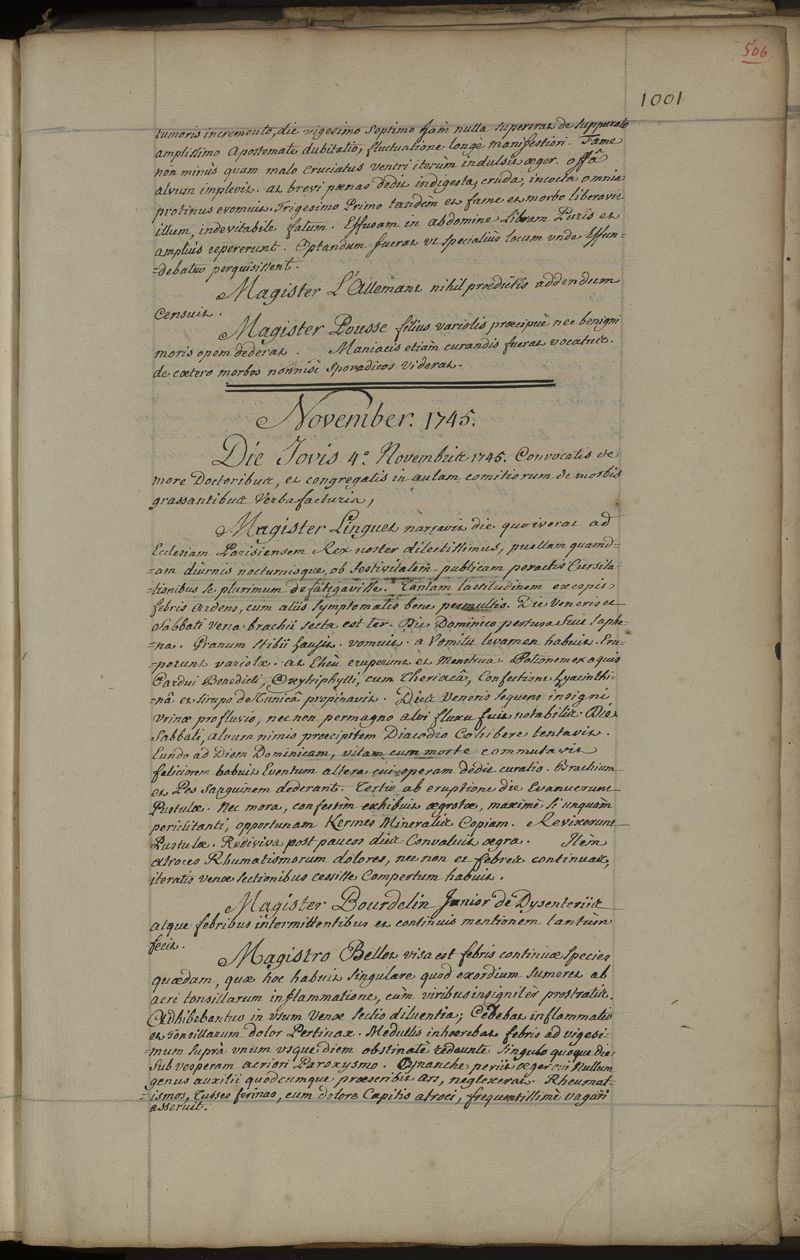 506
1001
tumoris incremento, die vigesimo septimo jam nulla supererat de suppurato
amplissimo apostemate dubitatio, fluctuatione longè manifestiori. Fame
non minùs quam malo cruciatus ventri iterùm indulsit æger. offâ
alvum implevit. at brevi pœnas dedit indigesta, cruda, incocta omnia
protinus evomuit. Trigesimo Primo tandem et fame et morbo liberavit
illum, indevitabile fatum. Effusam in abdomine Libram Puris et
ampliùs repererunt. Optandum fuerat ut specialiùs locum unde effun=
=debatur perquisissent.
Magister L'Allemant nihil prœdictis addendum
Censuit.
Magister Pousse filius variolis prœcipuè nec benigni
moris opem dederat. Maniacis etiàm curandis fuerat vocatus.
de cœtero morbos nonnisi sporadicos viderat.
November. 1745.
Die Jovis 4.° Novembris 1745. Convocatis de
more Doctoribus, et congregatis in aulam comitiorum de morbis
grassantibus Verba facturis,
Magister Linguet narravit die quo iverat ad
Ecclesiam Parisiensem Rex noster dilectissimus, puellam quamd=
=am diurnis nocturnisque, ob festivitatem publicam peractis Cursita=
=tionibus se plurimum defatigavisse. Tantam lassitudinem excepit
febris ardens, cum aliis symptomatis bene permultis. Die Veneris et
Sabbati vena brachii secta est ter. Die Dominico pertusa fuit saphe=
=na. Granum stibii hausit. vomuit. a Vomitu levamen habuit. Eru=
=perunt variolæ. at Eheu eruperunt et Menstrua. Potionem ex aquis
Cardui Benedicti, Oxytriphylli, cum Theriacâ, Confectione Hyacinthi=
=nâ et sirupo de Tunicâ propinavit. Dies Veneris sequens insigni
Urinæ profluvio, nec non permagno alvi fluxu fuit notabilis. Die
Sabbati, alvum nimis prœcipitem Diacodio Cohibere tentavit.
Eundo ad Diem Dominicam, vitam cum morte commutavit
feliciorem habuit Eventum altera cui operam dedit curatio. Brachium
et Pes Sanguinem dederant. Tertio ab eruptione die Evanuerunt
Pustulæ. Nec mora, confestim exhibuit œgrotæ, maximè si unquam
periclitanti, opportunam Kermes Mineralis Copiam. Revixerunt
Pustulæ. Rediviva post paucos dies Convaluit œgra. Item
atroces Rhumatismorum dolores, nec non et febres continuas,
iteratis venæ sectionibus cessisse Compertum habuit.
Magister Bourdelin Junior de Dysenteriis
atque febribus intermittentibus et continuis mentionem tantùm
fecit.
Magistro Bellot visa est febris continuæ species
quædam, quæ hoc habuit singulare quod exordium sumeret ab
acri tonsillarum inflammatione, cùm viribus insignitèr prostratis.
Adhibebantur in usum Venæ sectio diluentia; Cedebat inflammatio
et tonsillarum dolor Pertinax. Medullis inhœrebat febris ad vigesi=
mum suprà unum usque diem obstinatè redeunte singulo quoque die
sub vesperam acriori Paroxysmo. Cynanche periit œger cui Nullum
genus auxilii quodcumque prœscribit ars, neglexerat. Rheumat=
=ismos, Tusses ferinas, cum dolore Capitis atroci, frequentissimè vagari
asseruit.